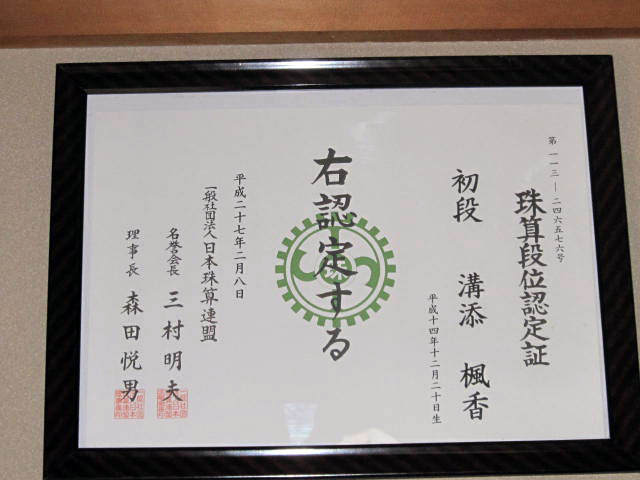 第一一三—二四六五七六号
珠算段位認定証
初段 溝添 楓香
平成十四年十二月二十日生
右認定する
平成二十七年二月八日
一般社団法人日本珠算連盟
名誉会長 三村明夫
理事長 森田悦男